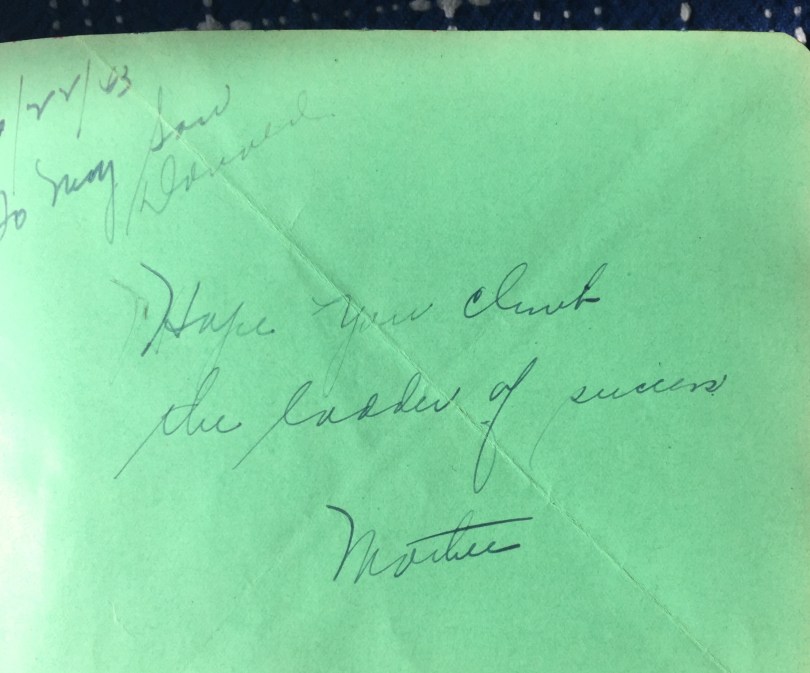 /22/43
To My Son
Donald
Hope you climb
the ladder of success
Mother